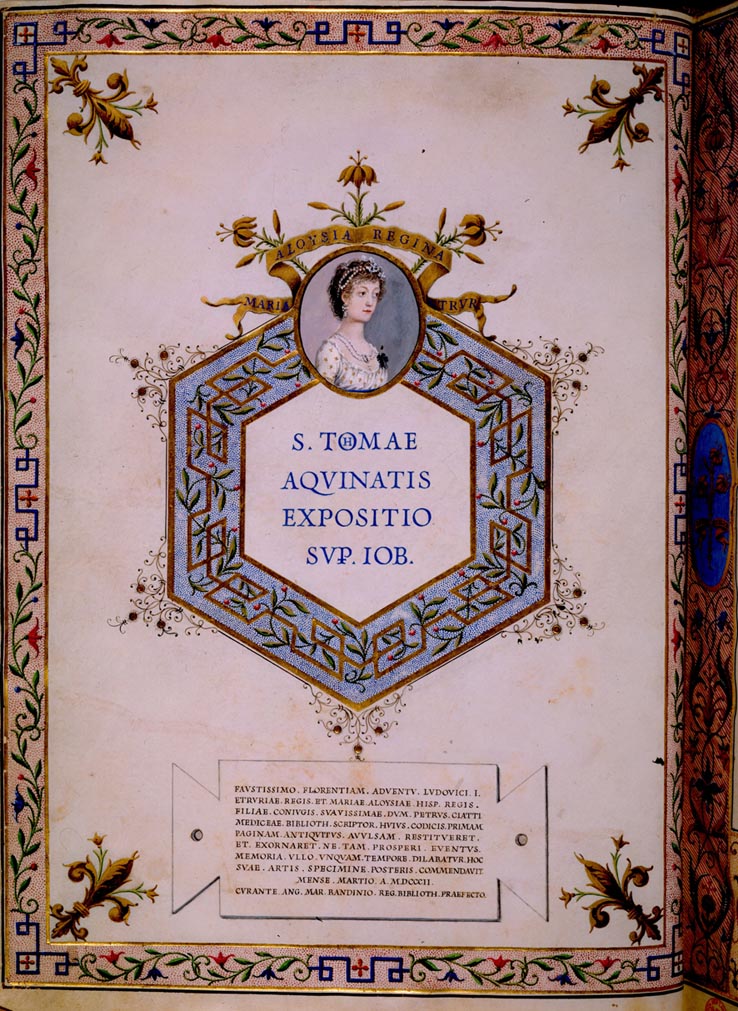 ALOYSIA REGINA
MARIA
ETRVR
S. THOMAE
AQVINATIS
EXPOSITIO
SVP. IOB.
FAVSTISSIMO. FLORENTIAM. ADVENTV. LVDOVICI. I.
ETRVRIAE. REGIS. ET. MARIAE. ALOYSIAE. HISP. REGIS.
FILIAE. CONIVGIS. SVAVISSIMAE. DVM. PETRVS. CIATTI
MEDICEAE. BIBLIOTH. SCRIPTOR. HVIVS. CODICIS. PRIMAM
PAGINAM. ANTIQVITVS. AVVLSAM. RESTITVERET.
ET. EXORNARET. NE. TAM. PROSPERI. EVENTVS.
MEMORIA. VLLO. VNQVAM. TEMPORE. DILABATVR. HOC
SVAE. ARTIS. SPECIMINE. POSTERIS. COMMENDAVIT
MENSE. MARTIO. A. MDCCCII.
CVRANTE. ANG. MAR. BANDINIO. REG. BIBLIOTH. PRAEFECTO.